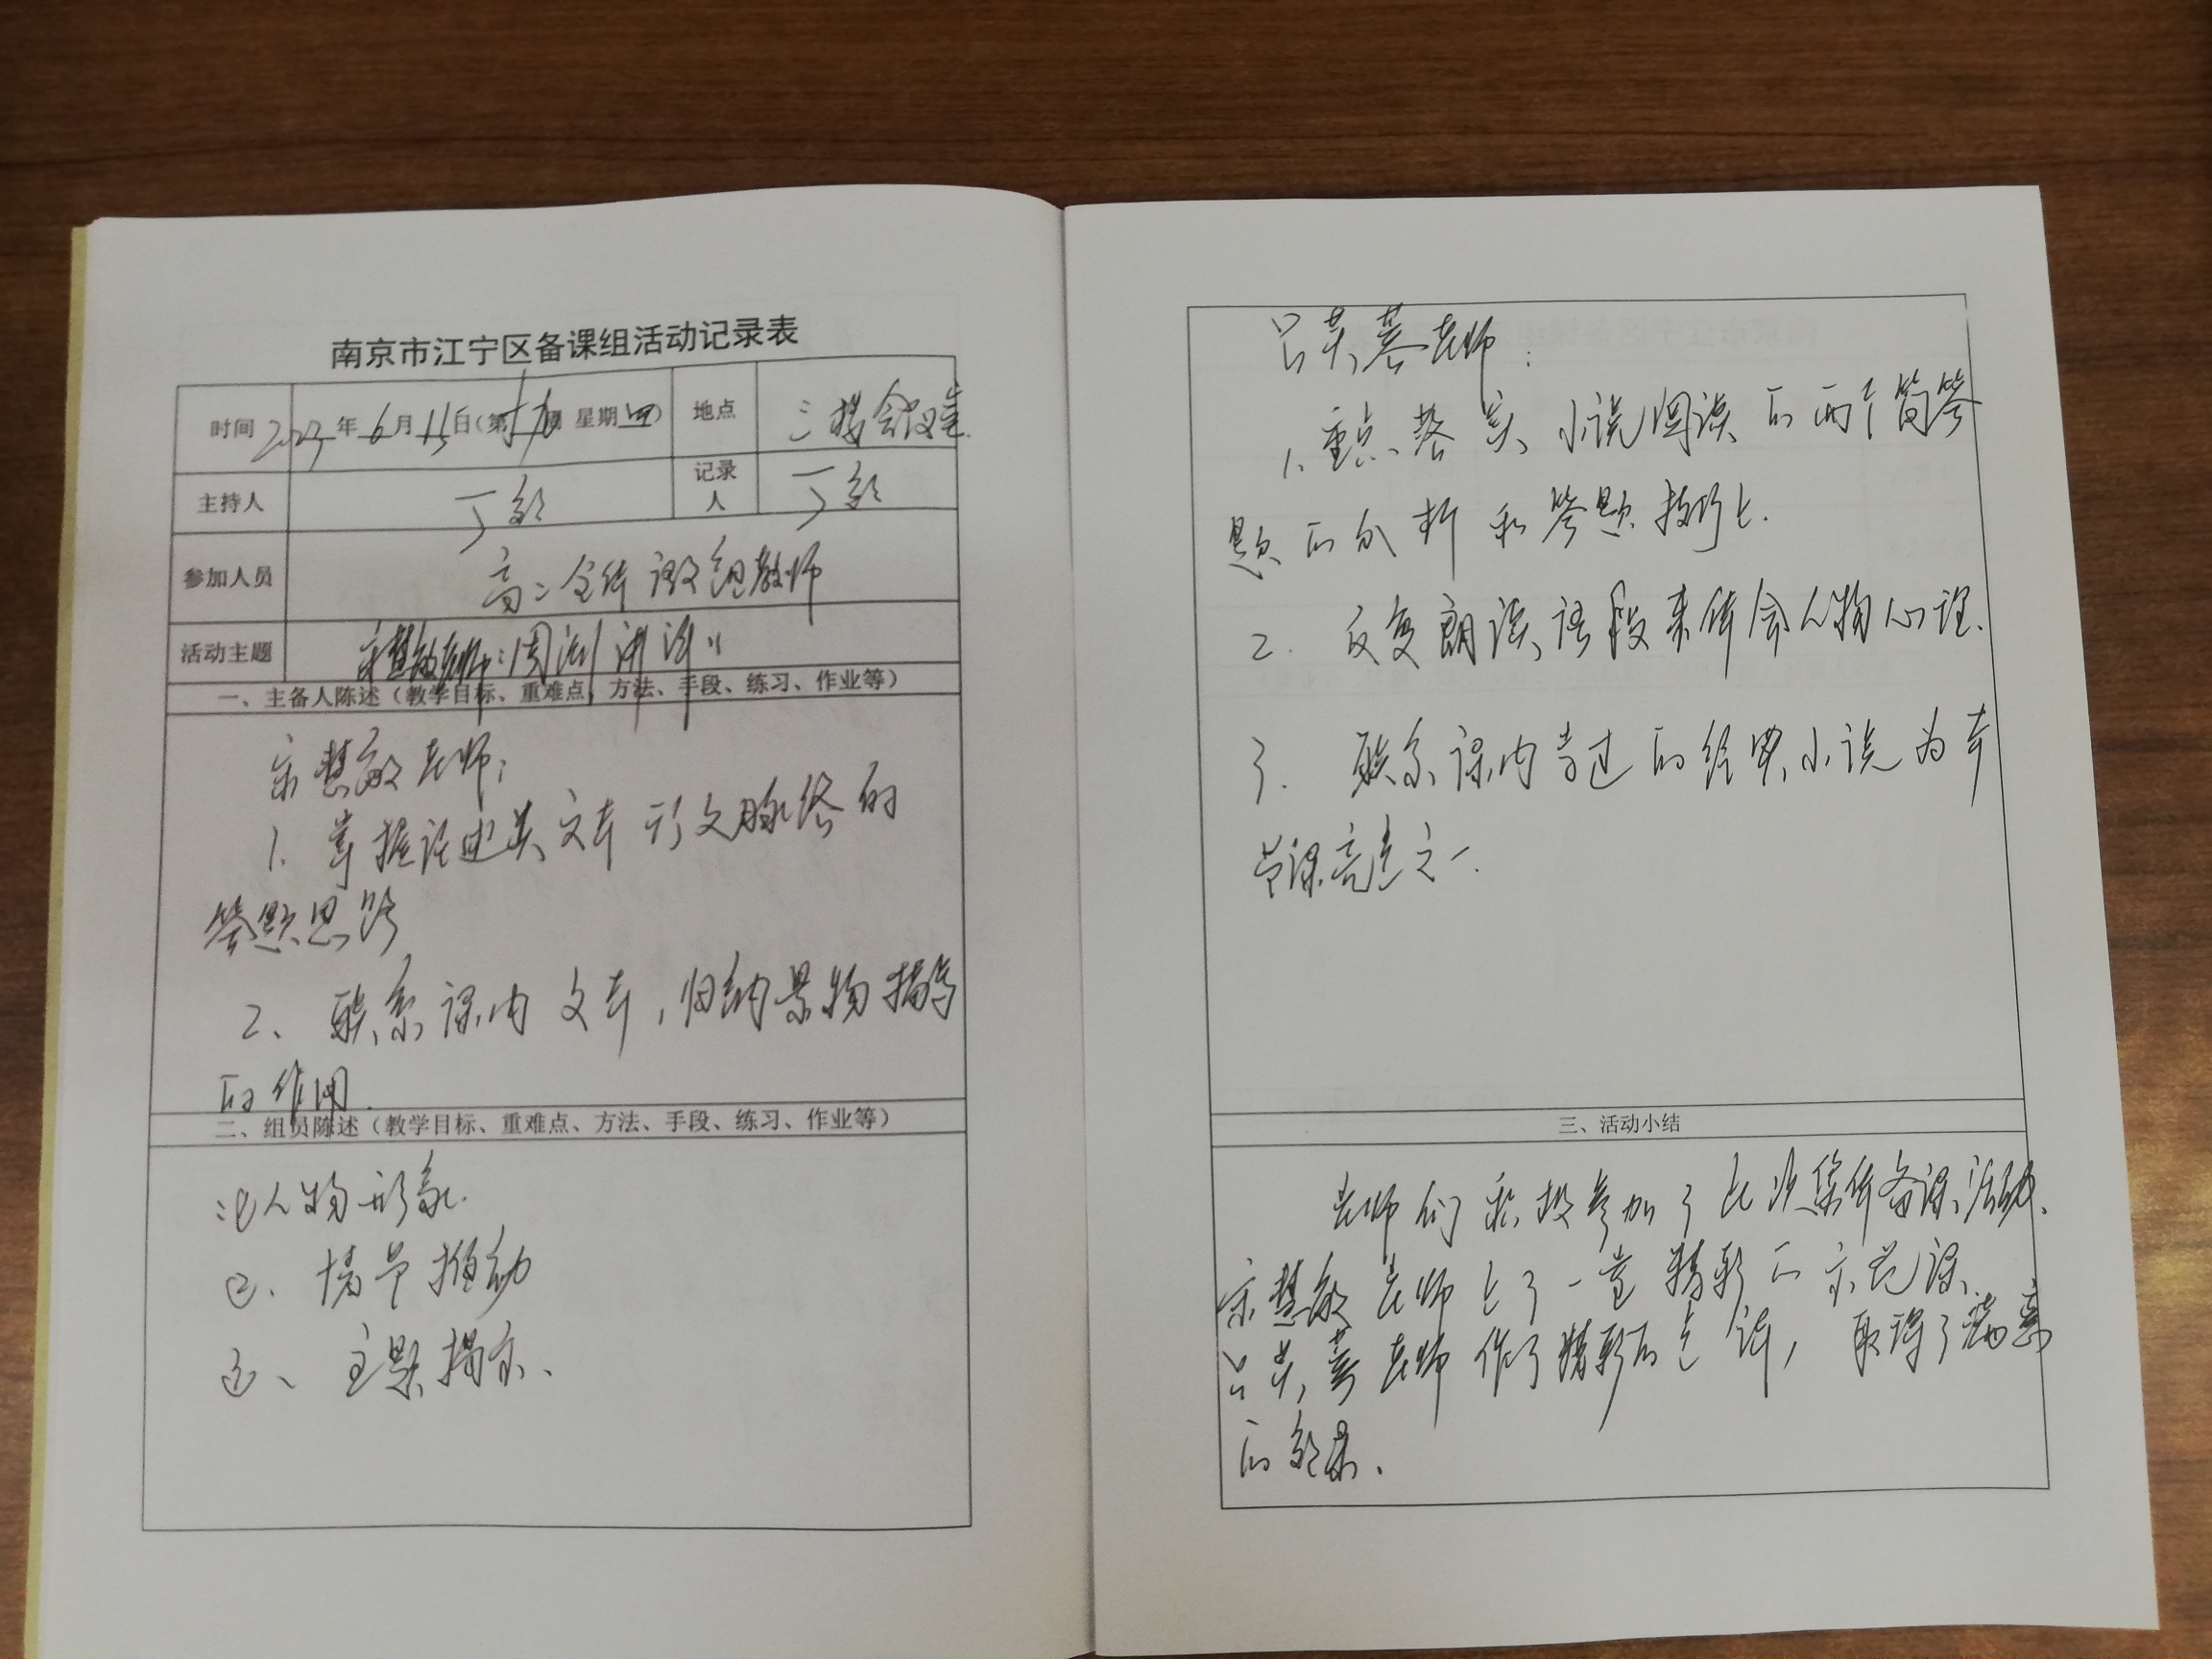 南京市江宁区备课组活动记录表
时间 2023年6月15日(第十九周 星期四) 地点 三楼会议室
主持人 丁 记录人 丁
参加人员 高二全体语文组教师
活动主题 宋慧敏老师:周测讲评
一、主备人陈述（教学目标、重难点、方法、手段、练习、作业等）
宋慧敏老师:
1、掌握论述类文本行文脉络的
答题思路
2、联系课内文本,归纳景物描写
的作用.
二、组员陈述（教学目标、重难点、方法、手段、练习、作业等）
①人物形象.
②、情节推动
③、主题揭示、
吕老师:
1、重点落实小说阅读的两个简答
题的分析和答题技巧上.
2. 反复朗读语段来体会人物心理.
3. 联系课内学过的经典小说为本
节课亮点之一.
三、活动小结
老师们积极参加了此次集体备课活动、
宋慧敏老师上了一堂精彩的示范课、
吕老师作了精彩的点评,取得了满意
的效果.